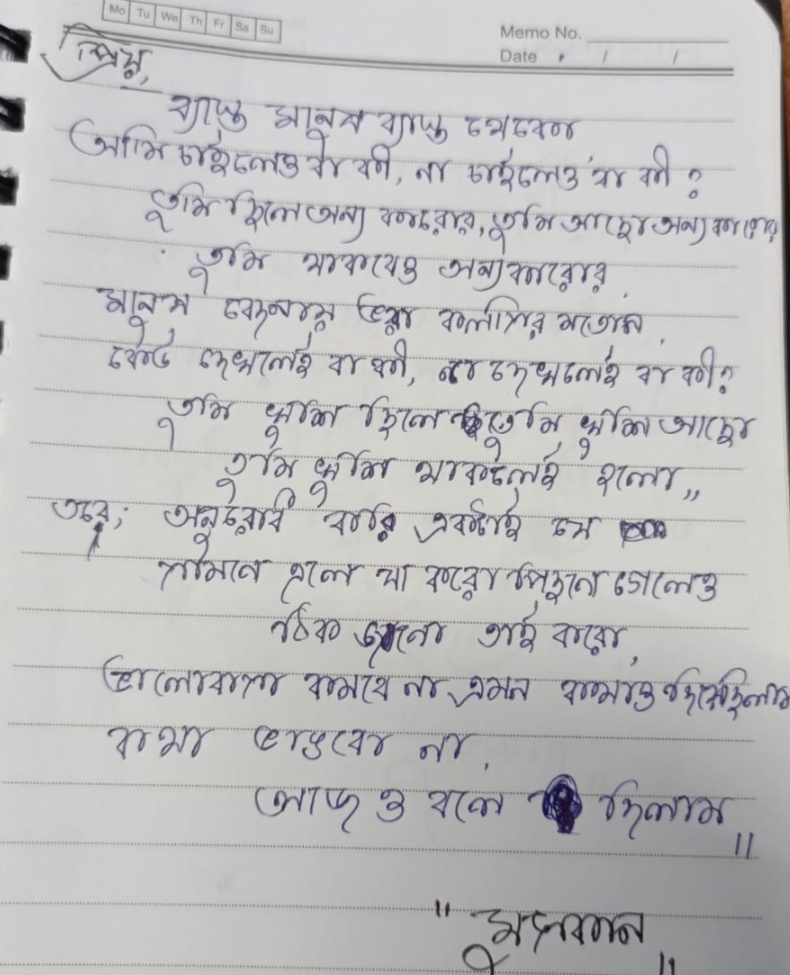 Mo Tu We Th Fr Sa Su
Memo No.
Date / /
প্রিয়,
ব্যাস্ত মানুষ ব্যাস্ত থেকো
আমি চাইলেও বা কী, না চাইলেও বা কী ?
তুমি ছিলে অন্য কারোর, তুমি আছো অন্য কারোর
তুমি থাকবেও অন্য কারোর
মানুষ বেদনায় ভরা কলসির মতোন
কেউ দেখলেই বা কী, না দেখলেই বা কী?
তুমি খুশি ছিলে তুমি খুশি আছো
তুমি খুশি থাকলেই হলো,,
তবে, অনুরোধ করি একটাই যে
সামনে এলে যা করো পিছনে গেলেও
ঠিক যেনো তাই করো,
ভালোবাসা কমবে না এমন কথাও দিয়েছিলাম
কথা ভাঙবো না,
আজ ও বলে দিলাম"
" মুসকান "